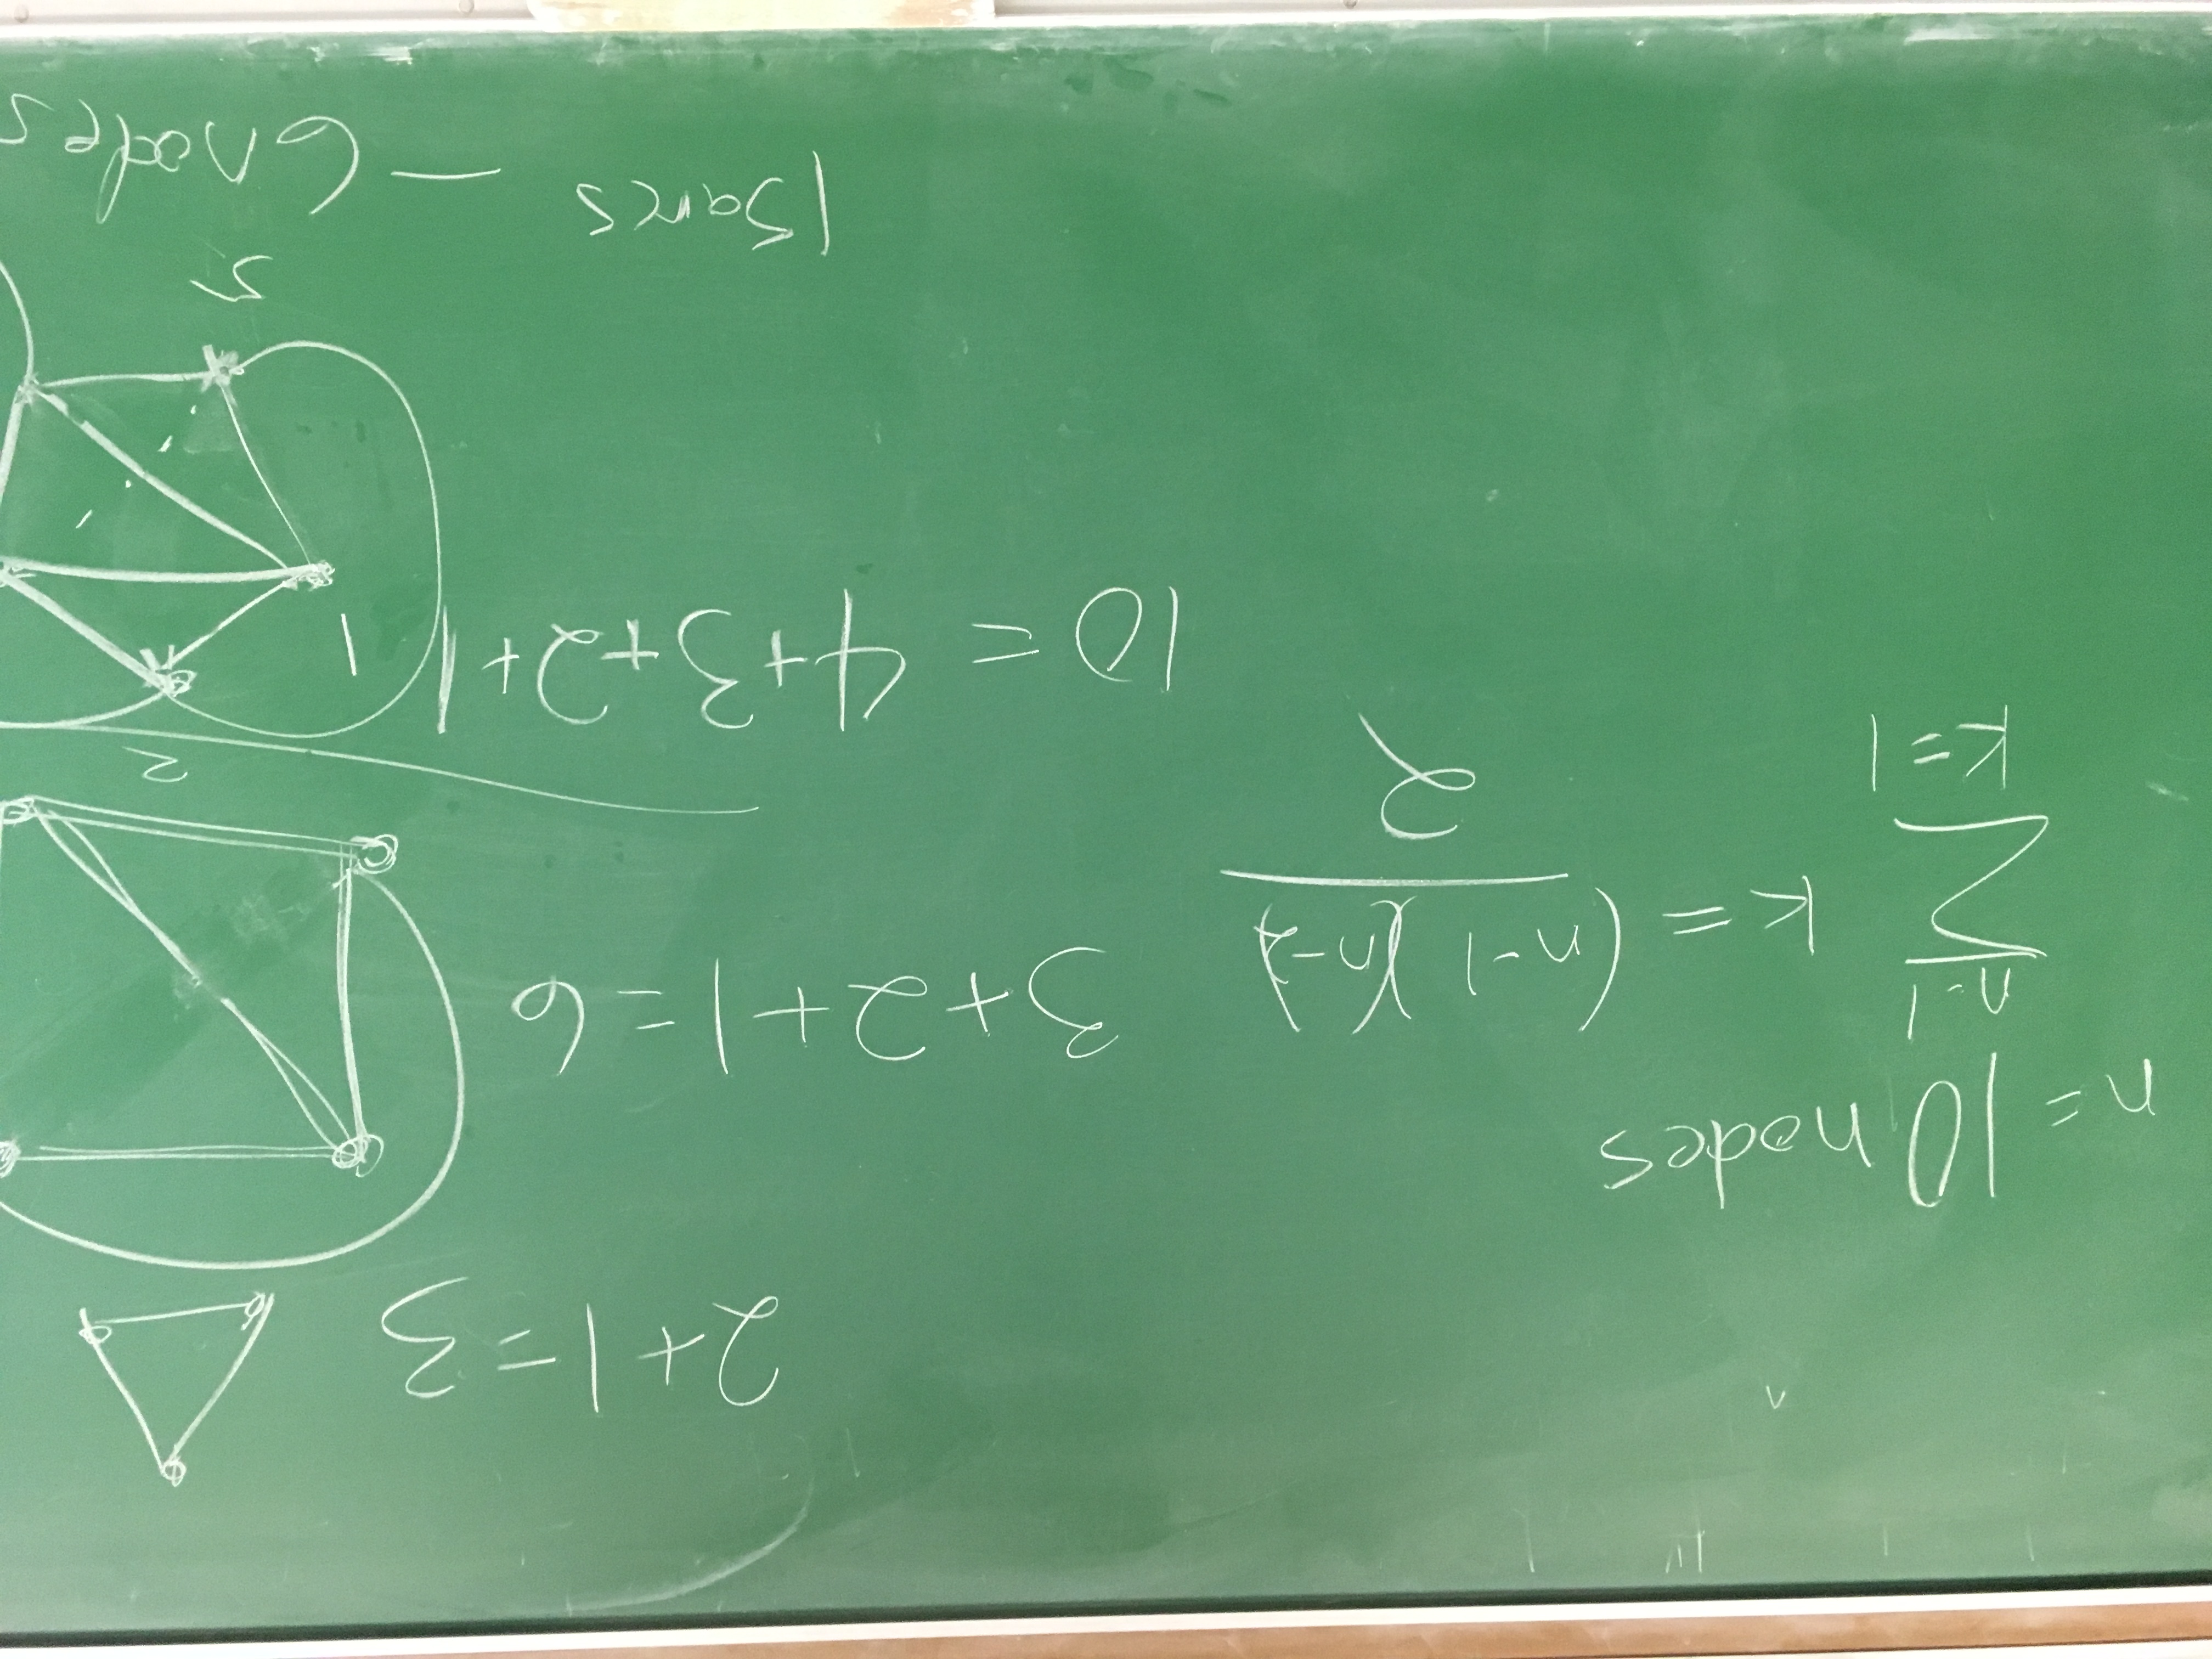 2+1=3
n = 10 nodes
n-1
∑ k = (n-1)(n-2)
k=1
2
3+2+1=6
2
10 = 4+3+2+1
1
5
15 arcs — 6 nodes